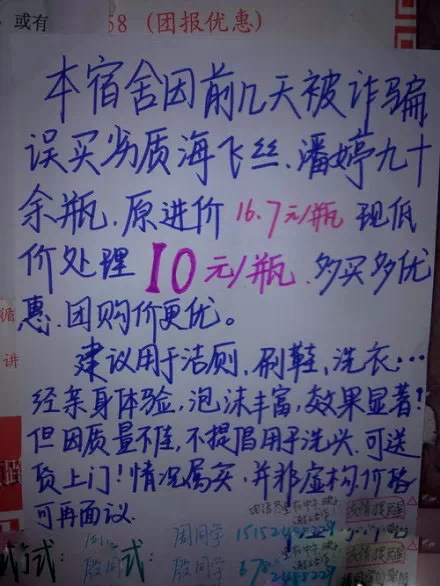 或有 58 (团报优惠)
本宿舍因前几天被诈骗
误买劣质海飞丝、潘婷九十
余瓶.原进价 16.7元/瓶 现低
价处理 10元/瓶.多买多优
惠.团购价更优。
循
讲
建议用于洁厕、刷鞋、洗衣…
经亲身体验,泡沫丰富,效果显著!
但因质量不佳,不提倡用于洗头.可送
货上门!情况属实,并非虚构.价格
可再面议.
周同学
式: 殷同学